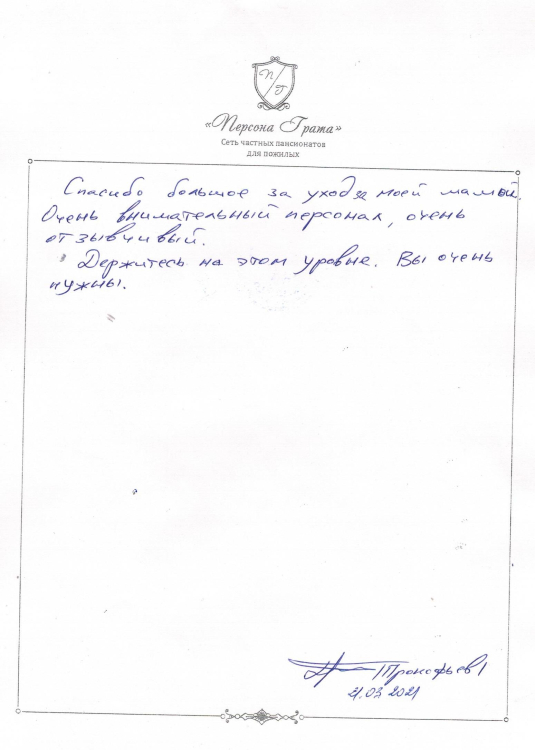 П/Г
«Персона Грата»
Сеть частных пансионатов
для пожилых
Спасибо большое за уход за моей мамой.
Очень внимательный персонал, очень
отзывчивый.
Держитесь на этом уровне. Вы очень
нужны.
/Прокофьев/
21.03 2021